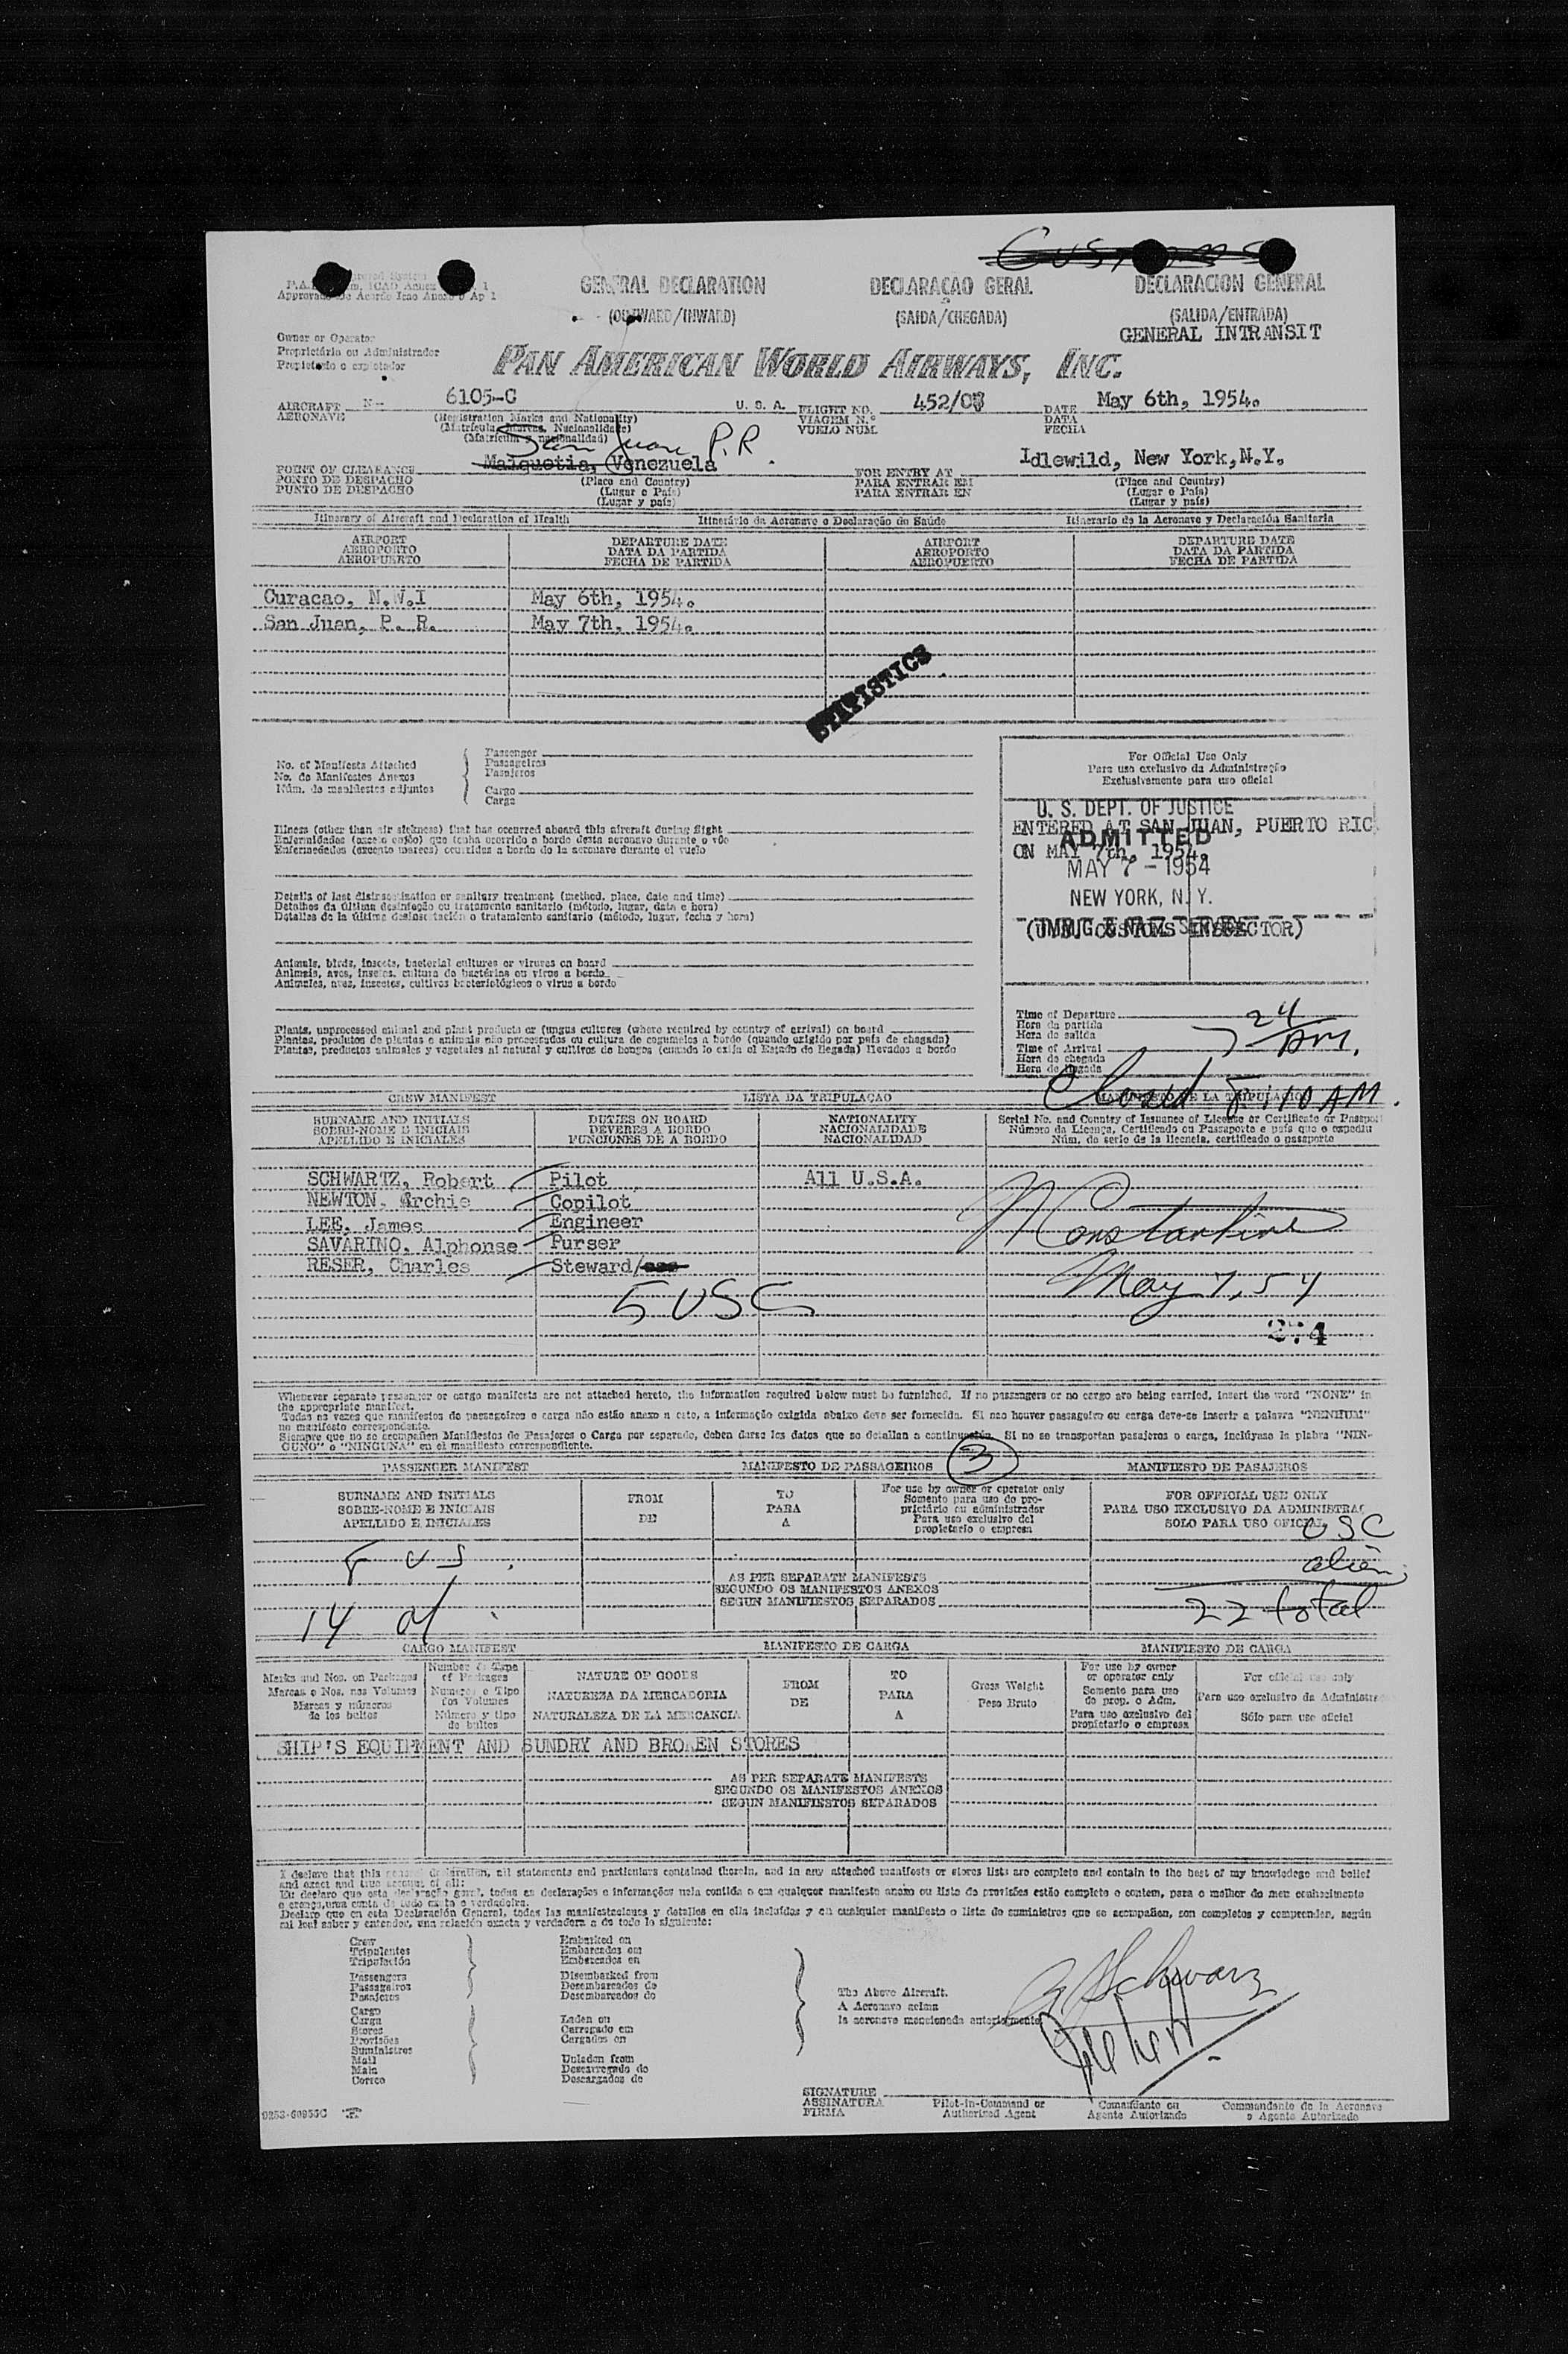 Customs
P.A.
Approvado De Acordo Icao Anexo 9 Ap 1
GENERAL DECLARATION DECLARAÇAO GERAL DECLARACION GENERAL
(OUTWARD/INWARD) (SAIDA/CHEGADA) (SALIDA/ENTRADA)
GENERAL INTRANSIT
Owner or Operator
Proprietário ou Administrador
Propietario o explotador
PAN AMERICAN WORLD AIRWAYS, INC.
AIRCRAFT N- 6105-C U. S. A. FLIGHT NO. 452/03 DATE May 6th, 1954.
AERONAVE (Registration Marks and Nationality) VIAGEM N.º DATA
(Matrícula, Marcas, Nacionalidade) VUELO NUM. FECHA
(Matrícula y nacionalidad)
San Juan P.R.
POINT OF CLEARANCE Maiquetia, Venezuela FOR ENTRY AT Idlewild, New York,N.Y.
PONTO DE DESPACHO (Place and Country) PARA ENTRAR EM (Place and Country)
PUNTO DE DESPACHO (Lugar e País) PARA ENTRAR EN (Lugar e País)
(Lugar y país) (Lugar y país)
Itinerary of Aircraft and Declaration of Health Itinerário da Aeronave e Declaração de Saúde Itinerario de la Aeronave y Declaración Sanitaria
AIRPORT DEPARTURE DATE AIRPORT DEPARTURE DATE
AEROPORTO DATA DA PARTIDA AEROPORTO DATA DA PARTIDA
AEROPUERTO FECHA DE PARTIDA AEROPUERTO FECHA DE PARTIDA
Curacao, N.W.I May 6th, 1954.
San Juan, P. R. May 7th, 1954.
STATISTICS
No. of Manifests Attached
No. de Manifestos Anexos
Núm. de manifiestos adjuntos
Passenger
Passageiros
Pasajeros
Cargo
Carga
Illness (other than air sickness) that has occurred aboard this aircraft during flight
Enfermidades (exceto enjôo) que tenha ocorrido a bordo desta aeronave durante o vôo
Enfermedades (excepto mareos) ocurridas a bordo de la aeronave durante el vuelo
Details of last disinsectization or sanitary treatment (method, place, date and time)
Detalhes da última desinfeção ou tratamento sanitario (método, lugar, data e hora)
Detalles de la última desinsectación o tratamiento sanitario (método, lugar, fecha y hora)
Animals, birds, insects, bacterial cultures or viruses on board
Animais, aves, insetos, cultura de bactérias ou virus a bordo
Animales, aves, insectos, cultivos bacteriológicos o virus a bordo
Plants, unprocessed animal and plant products or fungus cultures (where required by country of arrival) on board
Plantas, produtos de plantas e animais não processados ou cultura de cogumelos a bordo (quando exigido por país de chegada)
Plantas, productos animales y vegetales al natural y cultivos de hongos (cuando lo exija el Estado de llegada) llevados a bordo
For Official Use Only
Para uso exclusivo da Administração
Exclusivamente para uso oficial
U. S. DEPT. OF JUSTICE
ENTERED AT SAN JUAN, PUERTO RIC
ADMITTED
ON MAY 7th, 1954.
MAY 7 - 1954
NEW YORK, N. Y.
IMMIG. & NATZ. SERVICE
(U.S. CUSTOMS INSPECTOR)
Time of Departure
Hora da partida
Hora de salida
Time of Arrival
Hora da chegada
Hora de llegada
7 24 AM.
Closed 8:10 AM.
CREW MANIFEST LISTA DA TRIPULAÇAO MANIFIESTO DE LA TRIPULACION
SURNAME AND INITIALS DUTIES ON BOARD NATIONALITY Serial No. and Country of Issuance of License or Certificate or Passport
SOBRE-NOME E INICIAIS DEVERES A BORDO NACIONALIDADE Número da Licença, Certificado ou Passaporte e país que o expediu
APELLIDO E INICIALES FUNCIONES DE A BORDO NACIONALIDAD Núm. de serie de la licencia, certificado o pasaporte
SCHWARTZ, Robert Pilot All U.S.A.
NEWTON, Archie Copilot
LEE, James Engineer
SAVARINO, Alphonse Purser
RESER, Charles Steward/
N Constantine
May 7, 54
5 USC
274
Whenever separate passenger or cargo manifests are not attached hereto, the information required below must be furnished. If no passengers or no cargo are being carried, insert the word "NONE" in
the appropriate manifest.
Todas as vezes que manifestos de passageiros e carga não estão anexo a este, a informação exigida abaixo deve ser fornecida. Si nao houver passageiro ou carga deve-se inscrir a palavra "NENHUM"
no manifesto correspondente.
Siempre que no se acompañen Manifiestos de Pasajeros o Carga por separado, deben darse los datos que se detallan a continuación. Si no se transportan pasajeros o carga, inclúyase la plabra "NIN-
GUNO" o "NINGUNA" en el manifiesto correspondiente.
3
PASSENGER MANIFEST MANIFESTO DE PASSAGEIROS MANIFIESTO DE PASAJEROS
SURNAME AND INITIALS FROM TO For use by owner or operator only FOR OFFICIAL USE ONLY
SOBRE-NOME E INICIAIS DE PARA Somente para uso do pro- PARA USO EXCLUSIVO DA ADMINISTRAÇ
APELLIDO E INICIALES A prietário ou administrador SOLO PARA USO OFICIAL
Para uso exclusivo del
propietario o empresa
8 US USC
alien
AS PER SEPARATE MANIFESTS
SEGUNDO OS MANIFESTOS ANEXOS
SEGUN MANIFIESTOS SEPARADOS
14 al 22 total
CARGO MANIFEST MANIFESTO DE CARGA MANIFIESTO DE CARGA
Marks and Nos. on Packages
Marcas e Nos. nas Volumes
Marcas y números
de los bultos
Number & Type
of Packages
Numeros e Tipo
dos Volumes
Número y tipo
de bultos
NATURE OF GOODS
NATUREZA DA MERCADORIA
NATURALEZA DE LA MERCANCIA
FROM
DE
TO
PARA
A
Gross Weight
Peso Bruto
For use by owner
or operator only
Somente para uso
do prop. o Adm.
Para uso exclusivo del
propietario o empresa
For official use only
Para uso exclusivo da Administra
Sólo para uso oficial
SHIP'S EQUIPMENT AND SUNDRY AND BROKEN STORES
AS PER SEPARATE MANIFESTS
SEGUNDO OS MANIFESTOS ANEXOS
SEGUN MANIFIESTOS SEPARADOS
I declare that this general declaration, all statements and particulars contained therein, and in any attached manifests or stores lists are complete and contain to the best of my knowledege and belief
and exact and true account of all:
Eu declaro que esta declaração geral, todas as declarações e informações nela contida o em qualquer manifesto anexo ou lista de provisões estão completo e contem, para o melhor do meu conhecimento
e crença,uma conta de todo exato e verdadeira.
Declaro que en esta Declaración General, todas las manifestaciones y detalles en ella incluidos y en cualquier manifiesto o lista de suministros que se acompañen, son completos y comprenden, según
mi leal saber y entender, una relación exacta y verdadera a de todo lo siguiente:
Crew
Tripulantes
Tripulación
Passengers
Passageiros
Pasajeros
Cargo
Carga
Stores
Provisões
Suministros
Mail
Mala
Correo
Embarked on
Embarcados em
Embarcados en
Disembarked from
Desembarcados de
Desembarcados de
Laden on
Carregado em
Cargados en
Unladen from
Descarregado do
Descargados de
The Above Aircraft.
A Aeronave acima
la aeronave mencionada anteriormente
R Schwarz
SIGNATURE
ASSINATURA
FIRMA
Pilot-in-Command or
Authorized Agent
Comandante ou
Agente Autorizado
Commandante de la Aeronave
o Agente Autorizado
9253-60953C